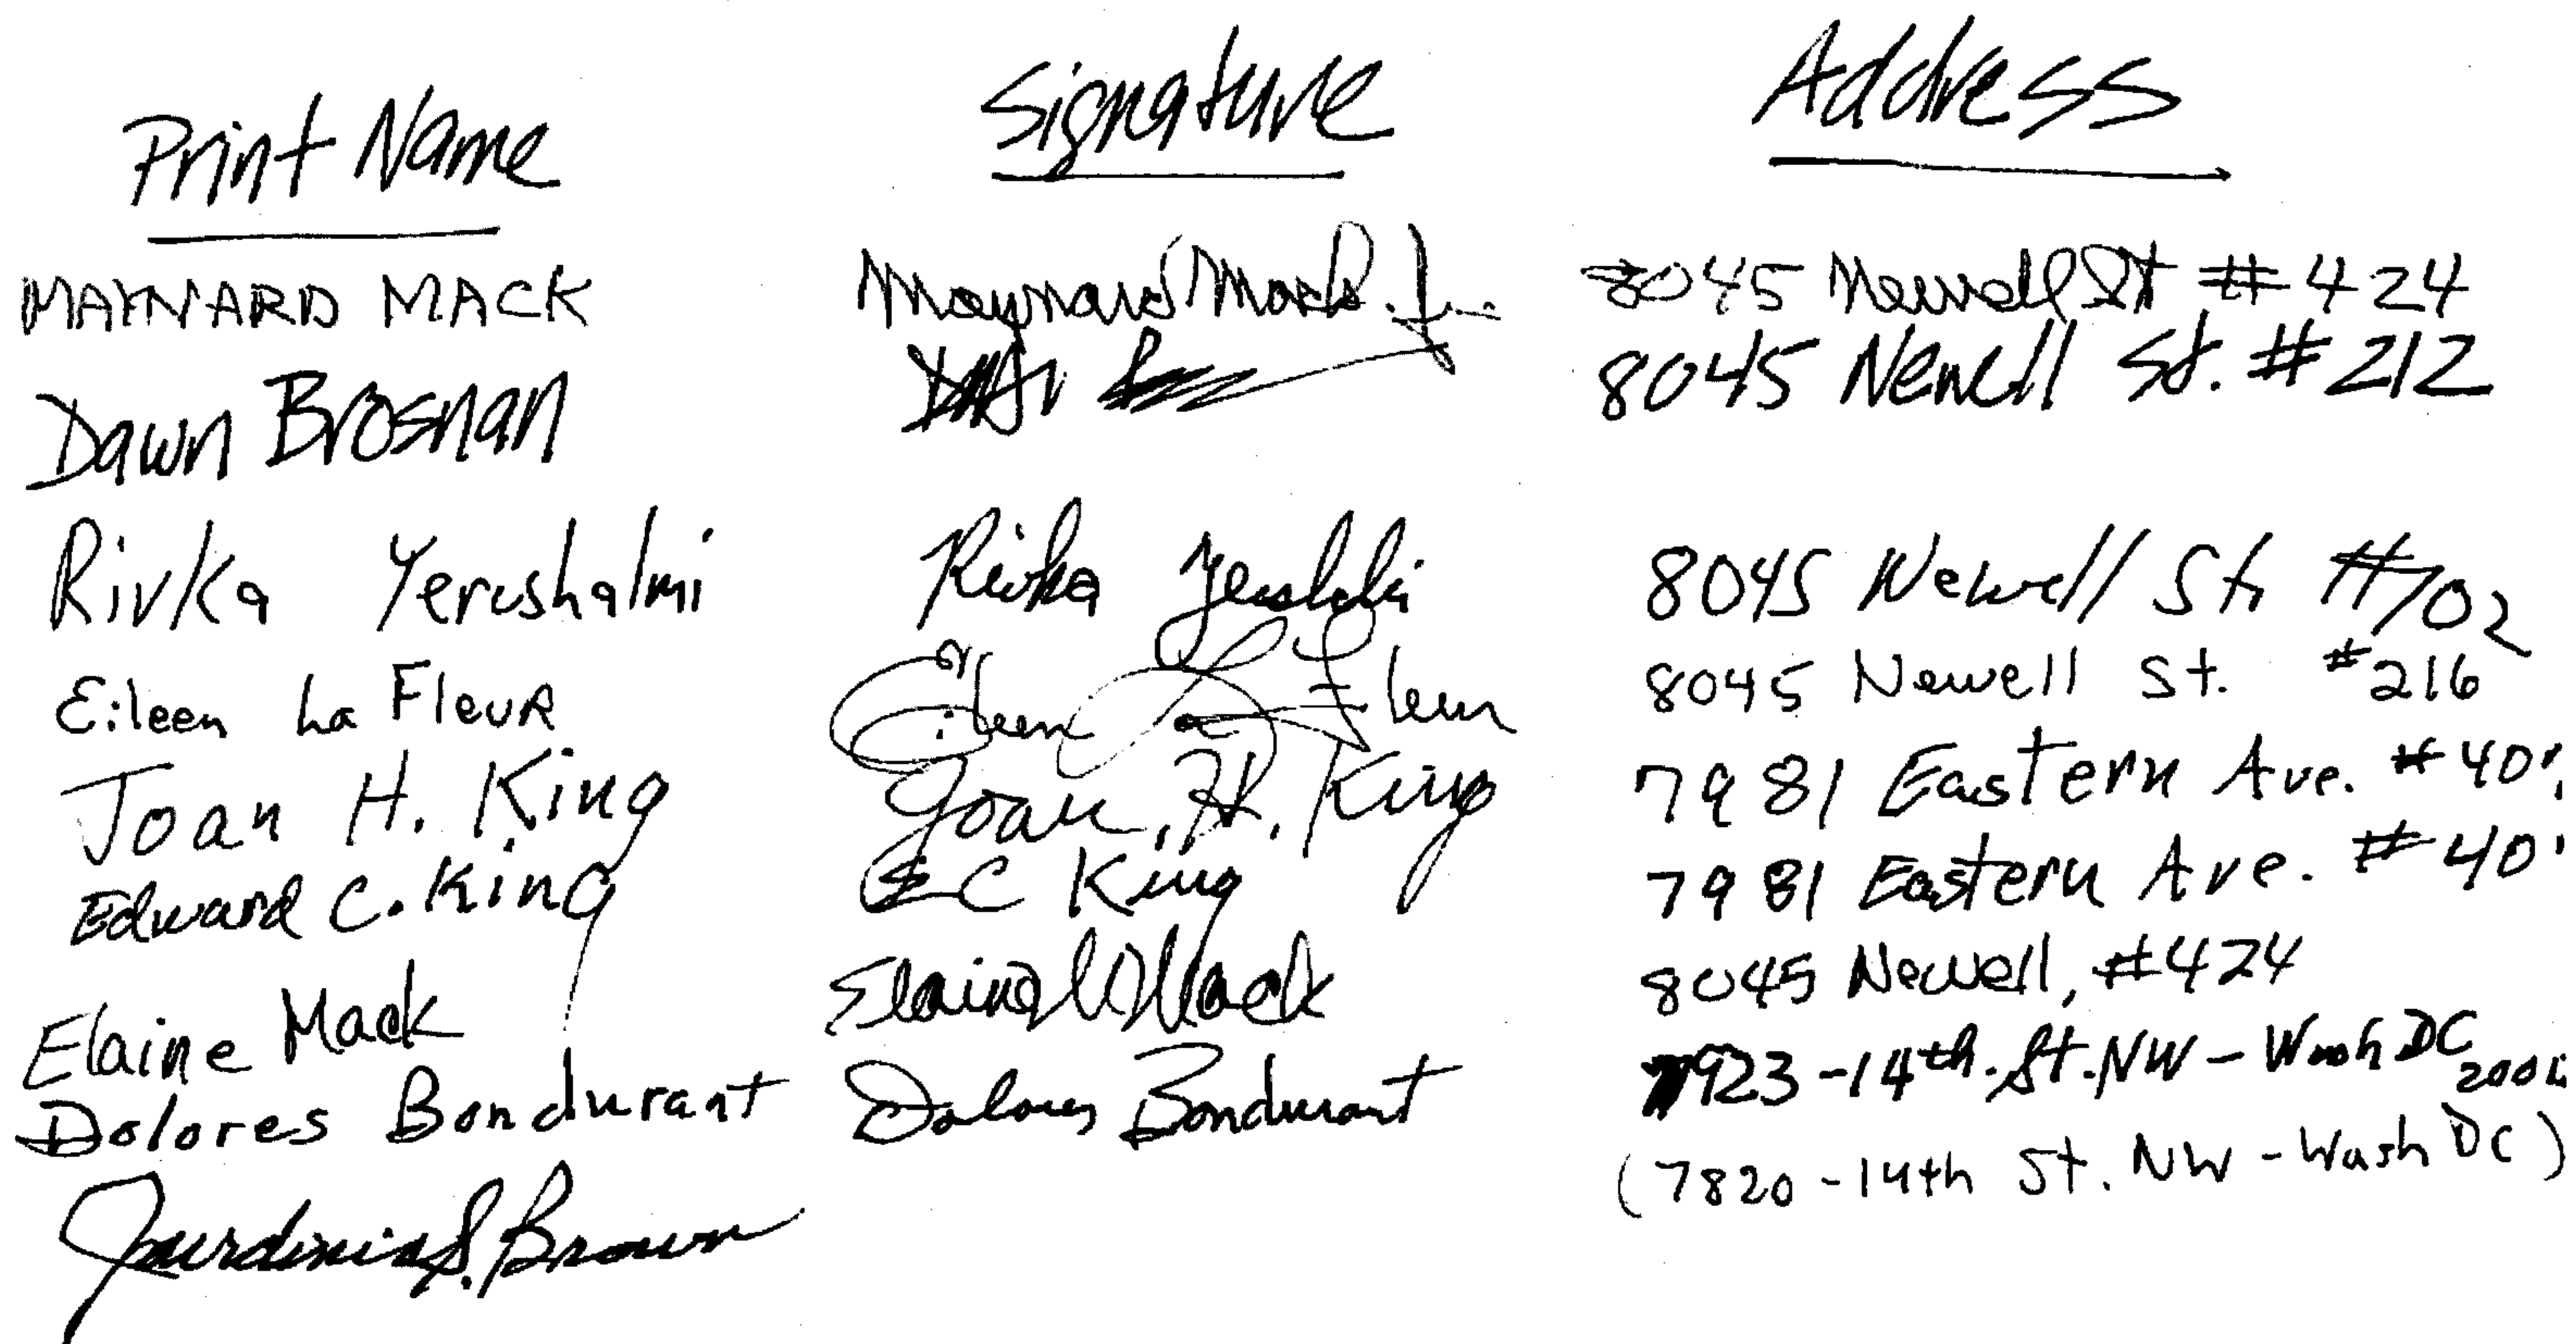 Print Name Signature Address
MAYNARD MACK Maynard Mack Jr. 8045 Newell St #424
Dawn Brosnan 8045 Newell St. #212
Rivka Yerushalmi Rivka Yerushalmi 8045 Newell St. #702
Eileen La Fleur Eileen La Fleur 8045 Newell St. #216
Joan H. King Joan H. King 7981 Eastern Ave. #40
Edward C. King E C King 7981 Eastern Ave. #40
Elaine Mack Elaine Mack 8045 Newell, #424
Dolores Bondurant Dolores Bondurant 7923-14th. St. NW - Wash DC
(7820-14th St. NW - Wash DC)
S. Brown